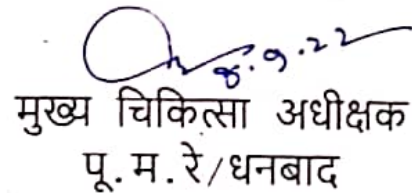 8.9.22
मुख्य चिकित्सा अधीक्षक
पू.म.रे/धनबाद